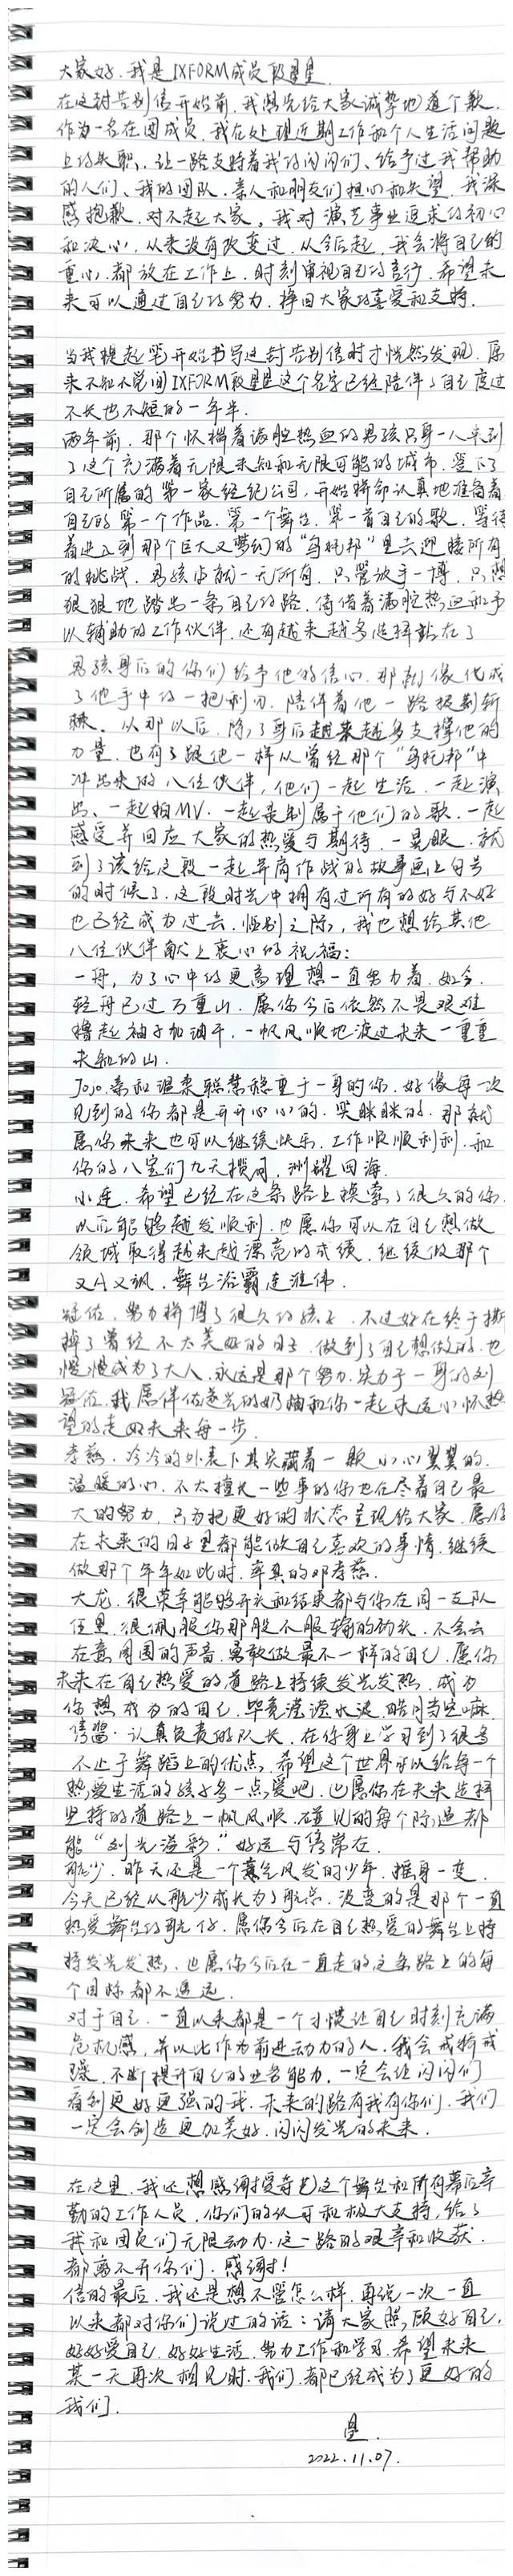 大家好，我是IXFORM成员段星星
在这封告别信开始前，我想先给大家诚挚地道个歉，
作为一名在团成员，我在处理近期工作和个人生活问题
上的失职，让一路支持着我的闪闪们、给予过我帮助
的人们、我的团队、亲人和朋友们担心和失望，我深
感抱歉，对不起大家，我对演艺事业追求的初心
和决心，从来没有改变过，从今后起，我会将自己的
重心，都放在工作上，时刻审视自己的言行，希望未
来可以通过自己的努力，挣回大家的喜爱和支持.
当我提起笔开始书写这封告别信时才恍然发现，原
来不知不觉间IXFORM段星星这个名字已经陪伴了自己度过
不长也不短的一年半.
两年前，那个怀揣着满腔热血的男孩只身一人来到
了这个充满着无限未知和无限可能的城市，签下了
自己所属的第一家经纪公司，开始拼命认真地准备着
自己的第一个作品，第一个舞台，第一首自己的歌，等待
着进入到那个巨大又梦幻的“乌托邦”里去迎接所有
的挑战，男孩本就一无所有，只管放手一博，只想
狠狠地踏出一条自己的路，倚借着满腔热血和予
以辅助的工作伙伴，还有越来越多选择站在了
男孩身后的你们给予他的信心，那就像化成
了他手中的一把利刃，陪伴着他一路披荆斩
棘，从那以后，除了身后越来越多支撑他的
力量，也有了跟他一样从曾经那个“乌托邦”中
冲出来的八位伙伴，他们一起生活，一起演
出、一起拍MV，一起录制属于他们的歌，一起
感受并回应大家的热爱与期待，一晃眼，就
到了该给这段一起并肩作战的故事画上句号
的时候了，这段时光中拥有过所有的好与不好
也已经成为过去，临别之际，我也想给其他
八位伙伴献上衷心的祝福：
一舟，为了心中的更高理想一直努力着，如今，
轻舟已过万重山，愿你今后依然不畏艰难
撸起袖子加油干，一帆风顺地渡过未来一重重
未知的山.
JOJO，亲和温柔聪慧稳重于一身的你，好像每一次
见到的你都是开开心心的，笑眯眯的，那就
愿你未来也可以继续快乐，工作顺顺利利，和
你的八宝们九天揽月，洲耀四海.
小连，希望已经在这条路上摸索了很久的你，
以后能够越发顺利，也愿你可以在自己想做
领域取得越来越漂亮的成绩，继续做那个
又A又飒，舞台浴霸连淮伟.
冠佑，努力拼博了很久的孩子，不过好在终于撕
掉了曾经不太美好的日子，做到了自己想做的，也
慢慢成为了大人，永远是那个努力、实力于一身的刘
冠佑，我愿伴佑逐光的奶柚和你一起永远心怀热
望的走好未来每一步.
孝慈，冷冷的外表下其实藏着一颗小心翼翼的，
温暖的心，不太擅长一些事的你也在尽着自己最
大的努力，只为把更好的状态呈现给大家，愿你
在未来的日子里都能做自己喜欢的事情，继续
做那个年年如此时，率真的邓孝慈.
大龙，很荣幸能够开头和结束都与你在同一支队
伍里，很佩服你那股不服输的劲头，不会去
在意周围的声音，勇敢做最不一样的自己，愿你
未来在自己热爱的道路上持续发光发热，成为
你想成为的自己，毕竟滢滢水波，皓月当空嘛.
隽酱，认真负责的队长，在你身上学习到了很多
不止于舞蹈上的优点，希望这个世界可以给每一个
热爱生活的孩子多一点爱吧，也愿你在未来选择
坚持的道路上一帆风顺，碰见的每个际遇都
能“刘光溢彩”，好运与隽常在.
航少，昨天还是一个意气风发的少年，摇身一变，
今天已经从航少成长为了航总，没变的是那个一直
热爱舞台的航仔，愿你今后在自己热爱的舞台上持
持发光发热，也愿你今后在一直走的这条路上的每
个目标都不遥远.
对于自己，一直以来都是一个习惯让自己时刻充满
危机感，并以此作为前进动力的人，我会戒骄戒
躁，不断提升自己的业务能力，一定会让闪闪们
看到更好更强的我，未来的路有我有你们，我们
一定会创造更加美好，闪闪发光的未来.
在这里，我还想感谢爱奇艺这个舞台和所有幕后辛
勤的工作人员，你们的认可和极大支持，给了
我和团员们无限动力，这一路的艰辛和收获，
都离不开你们，感谢！
信的最后，我还是想不管怎么样，再说一次一直
以来都对你们说过的话：请大家照顾好自己，
好好爱自己，好好生活，努力工作和学习，希望未来
某一天再次相见时，我们都已经成为了更好的
我们.
星.
2022.11.07.